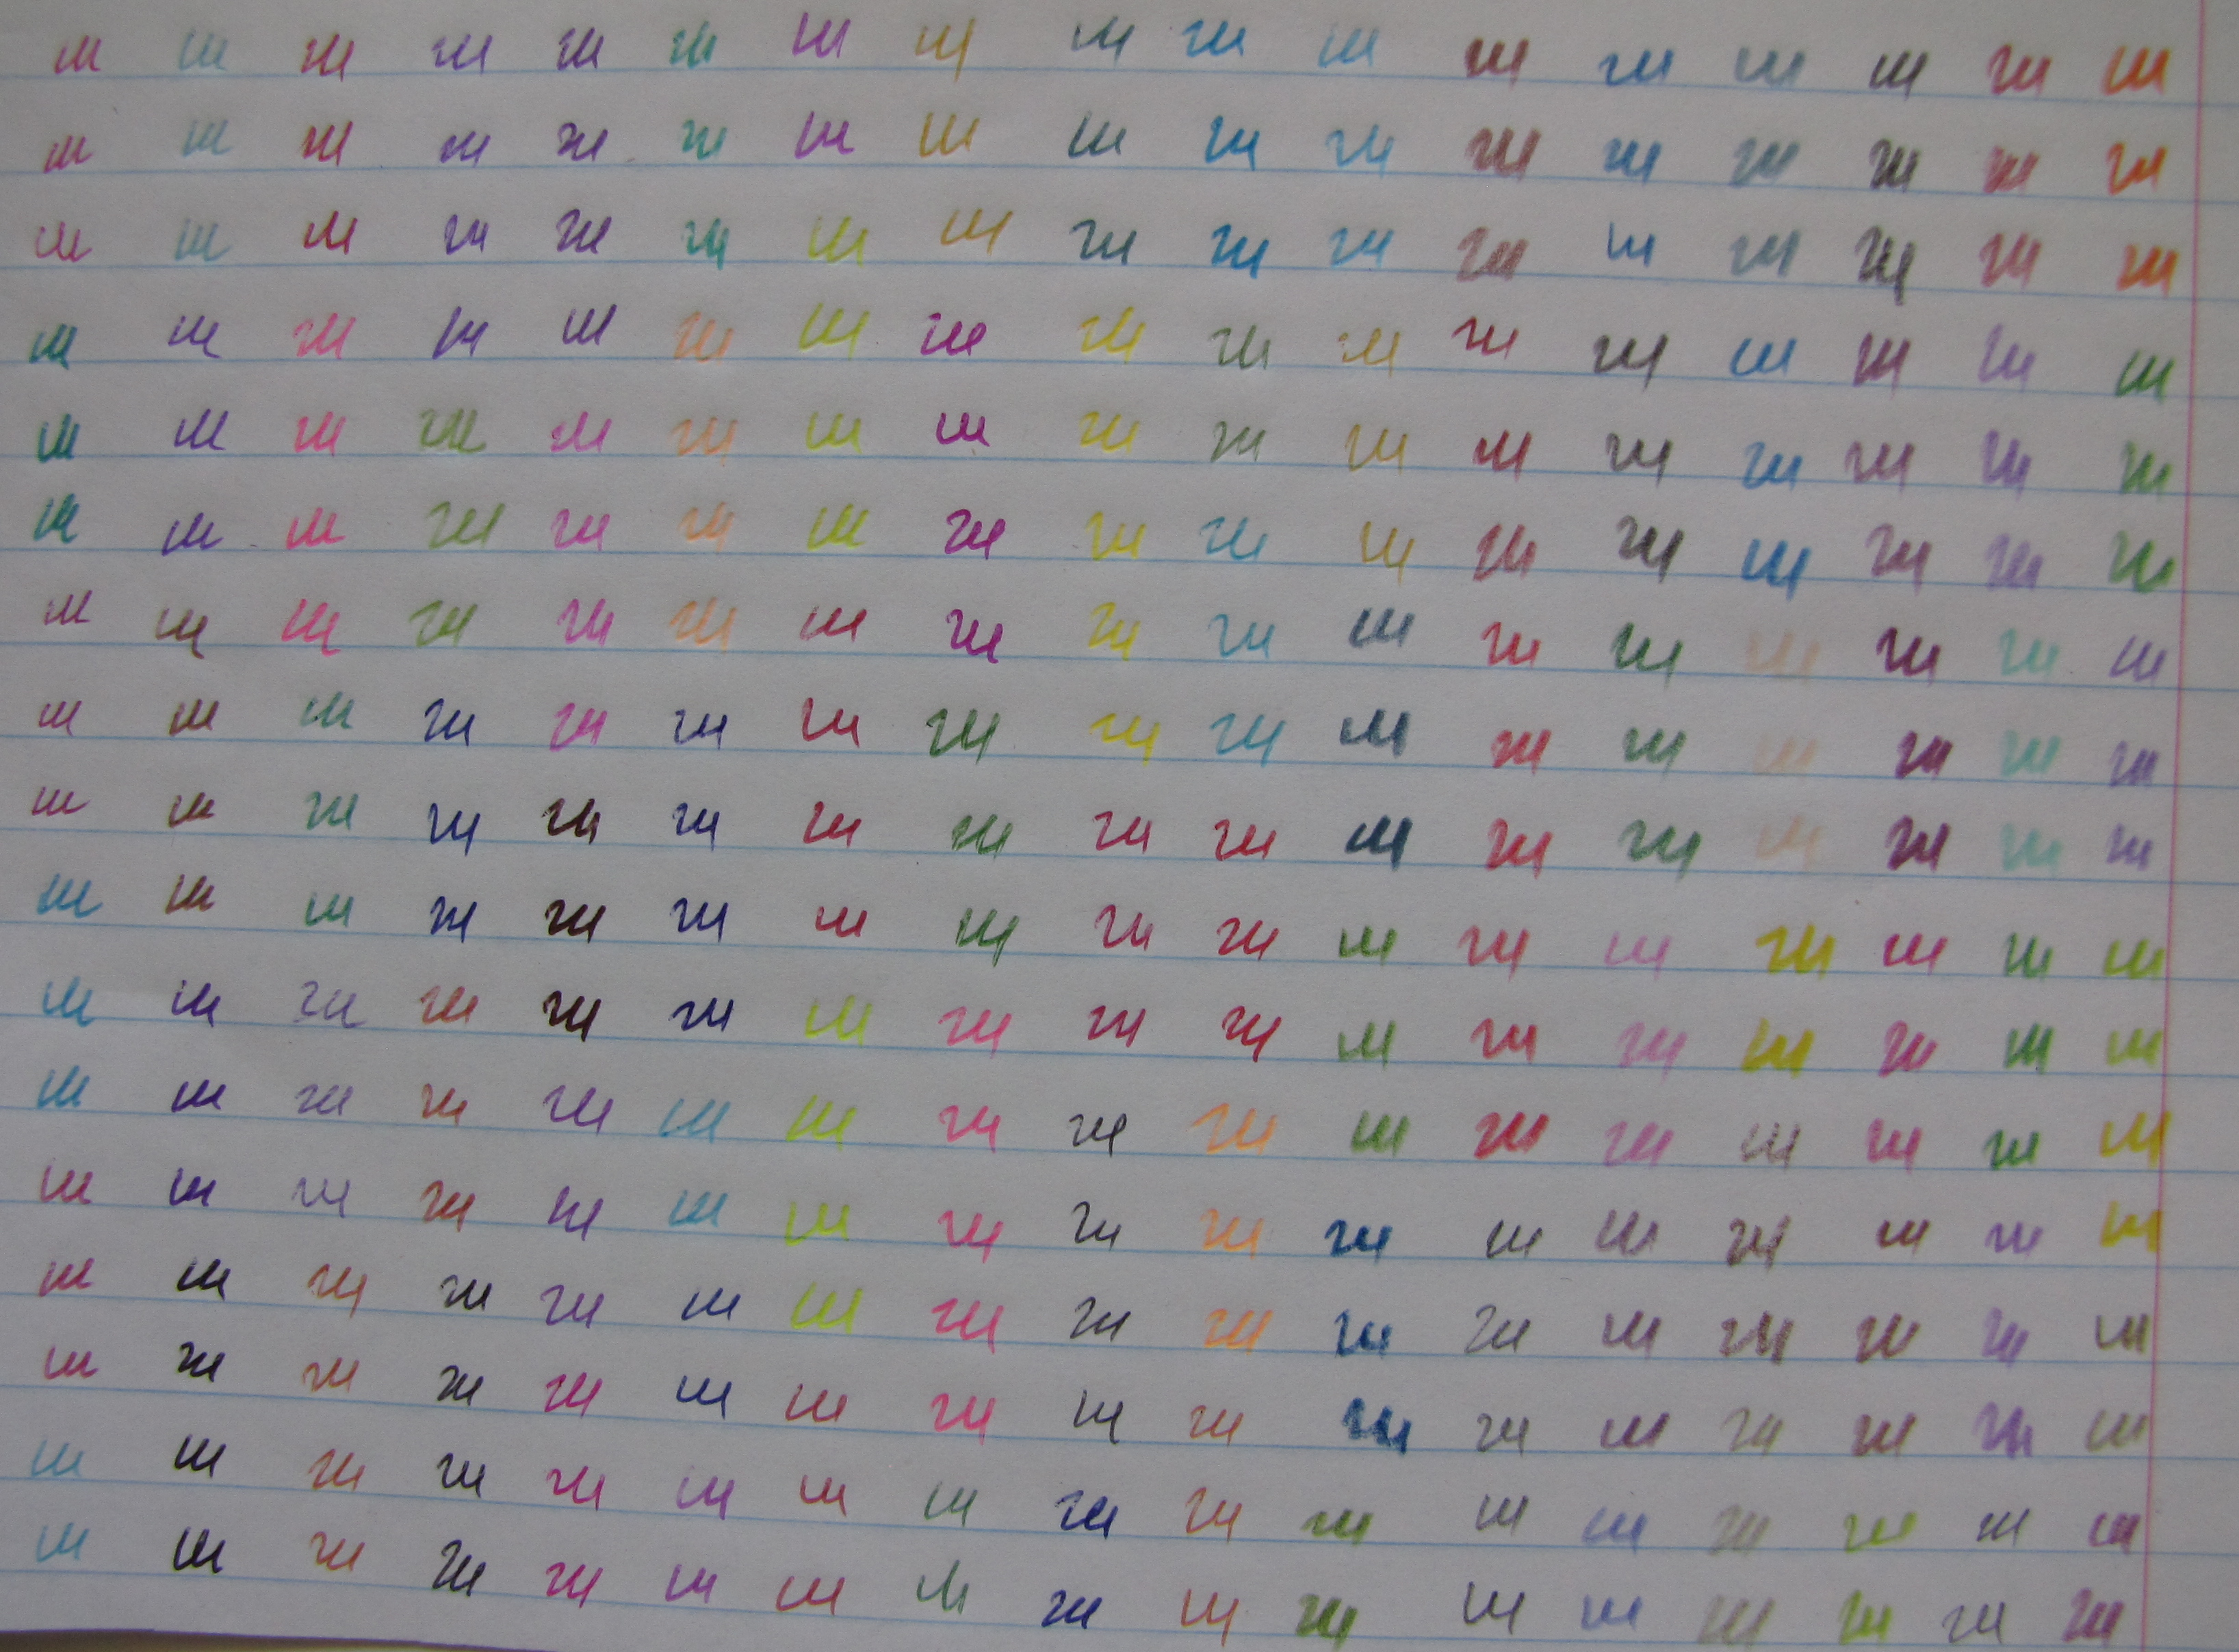 ш ш ш ш ш ш ш ш ш ш ш ш ш ш ш ш ш
ш ш ш ш ш ш ш ш ш ш ш ш ш ш ш ш ш
ш ш ш ш ш ш ш ш ш ш ш ш ш ш ш ш ш
ш ш ш ш ш ш ш ш ш ш ш ш ш ш ш ш ш
ш ш ш ш ш ш ш ш ш ш ш ш ш ш ш ш ш
ш ш ш ш ш ш ш ш ш ш ш ш ш ш ш ш ш
ш ш ш ш ш ш ш ш ш ш ш ш ш ш ш ш ш
ш ш ш ш ш ш ш ш ш ш ш ш ш ш ш ш ш
ш ш ш ш ш ш ш ш ш ш ш ш ш ш ш ш ш
ш ш ш ш ш ш ш ш ш ш ш ш ш ш ш ш ш
ш ш ш ш ш ш ш ш ш ш ш ш ш ш ш ш ш
ш ш ш ш ш ш ш ш ш ш ш ш ш ш ш ш ш
ш ш ш ш ш ш ш ш ш ш ш ш ш ш ш ш ш
ш ш ш ш ш ш ш ш ш ш ш ш ш ш ш ш ш
ш ш ш ш ш ш ш ш ш ш ш ш ш ш ш ш ш
ш ш ш ш ш ш ш ш ш ш ш ш ш ш ш ш ш
ш ш ш ш ш ш ш ш ш ш ш ш ш ш ш ш ш